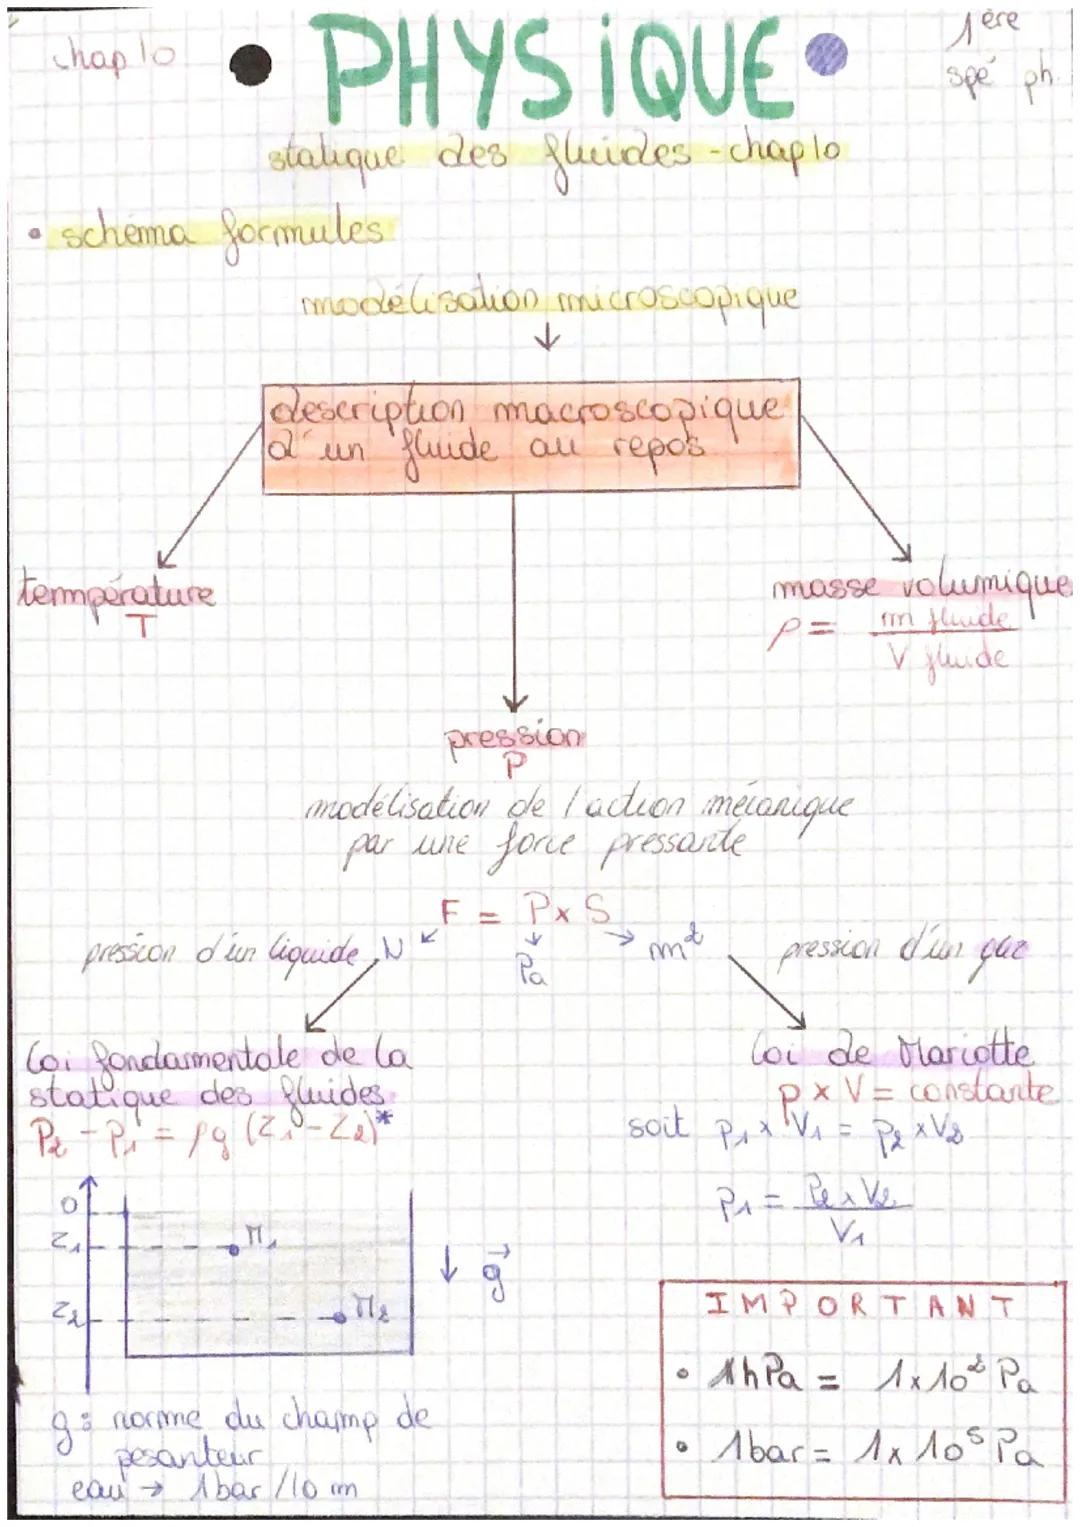 chap 10
PHYSIQUE
1ère
spé ph.
statique des fluides - chap 10
• schéma formules
modélisation microscopique
description macroscopique
d'un fluide au repos
température
T
masse volumique
ρ = m fluide / V fluide
pression
P
modélisation de l'action mécanique
par une force pressante
F = P x S
N
Pa
m²
pression d'un liquide
pression d'un gaz
loi fondamentale de la
statique des fluides
P2 - P1 = ρg (Z1 - Z2)*
loi de Mariotte
p x V = constante
soit p1 x V1 = p2 x V2
p1 = p2 x V2 / V1
0
Z1
M1
Z2
M2
g
g : norme du champ de
pesanteur
eau → 1 bar / 10 m
IMPORTANT
• 1 hPa = 1 x 10² Pa
• 1 bar = 1 x 10⁵ Pa